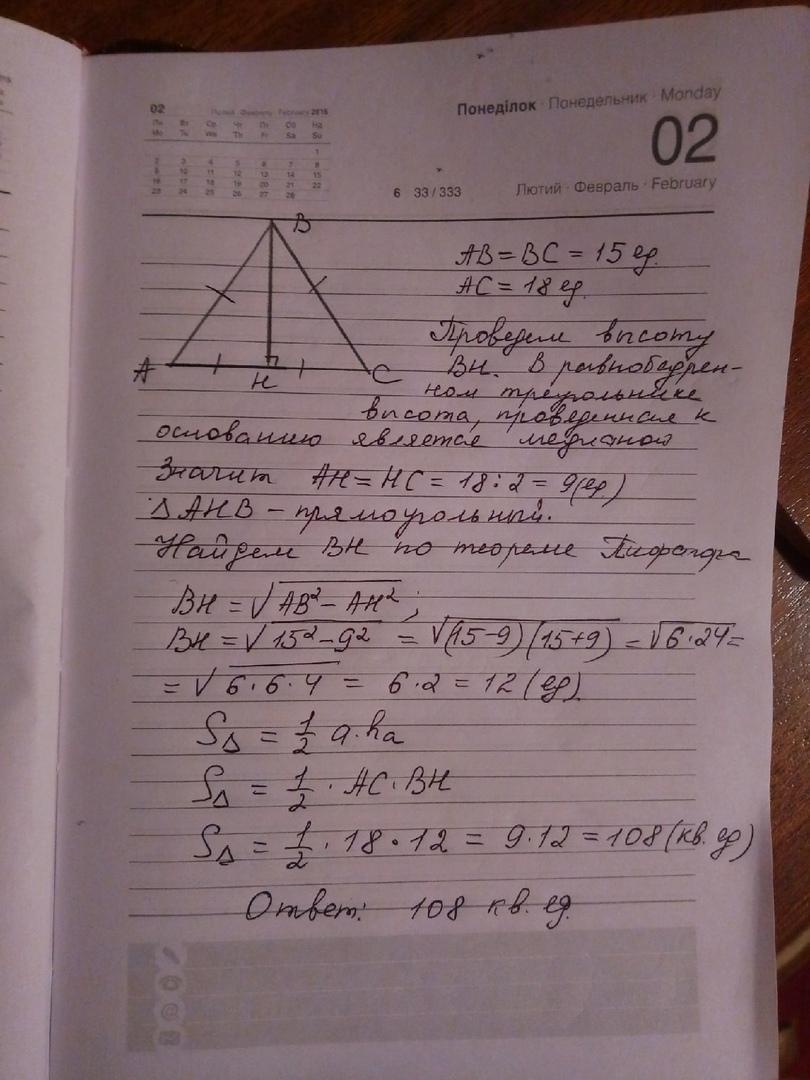 02 Лютий · Февраль · February 2015
Пн Вт Ср Чт Пт Сб Нд
Mo Tu We Th Fr Sa Su
1
2 3 4 5 6 7 8
9 10 11 12 13 14 15
16 17 18 19 20 21 22
23 24 25 26 27 28
Понеділок · Понедельник · Monday
02
6 33 / 333
Лютий · Февраль · February
B
A
H
C
AB = BC = 15 ед.
AC = 18 ед.
Проведем высоту
BH. В равнобедрен-
ном треугольнике
высота, проведенная к
основанию является медианой
Значит AH = HC = 18 : 2 = 9 (ед)
△ AHB – прямоугольный.
Найдем BH по теореме Пифагора
BH = √(AB² – AH²) ;
BH = √(15² – 9²) = √((15–9)(15+9)) = √(6·24) =
= √(6·6·4) = 6·2 = 12 (ед)
S△ = 1/2 a·hₐ
S△ = 1/2 · AC · BH
S△ = 1/2 · 18 · 12 = 9·12 = 108 (кв. ед)
Ответ: 108 кв. ед.